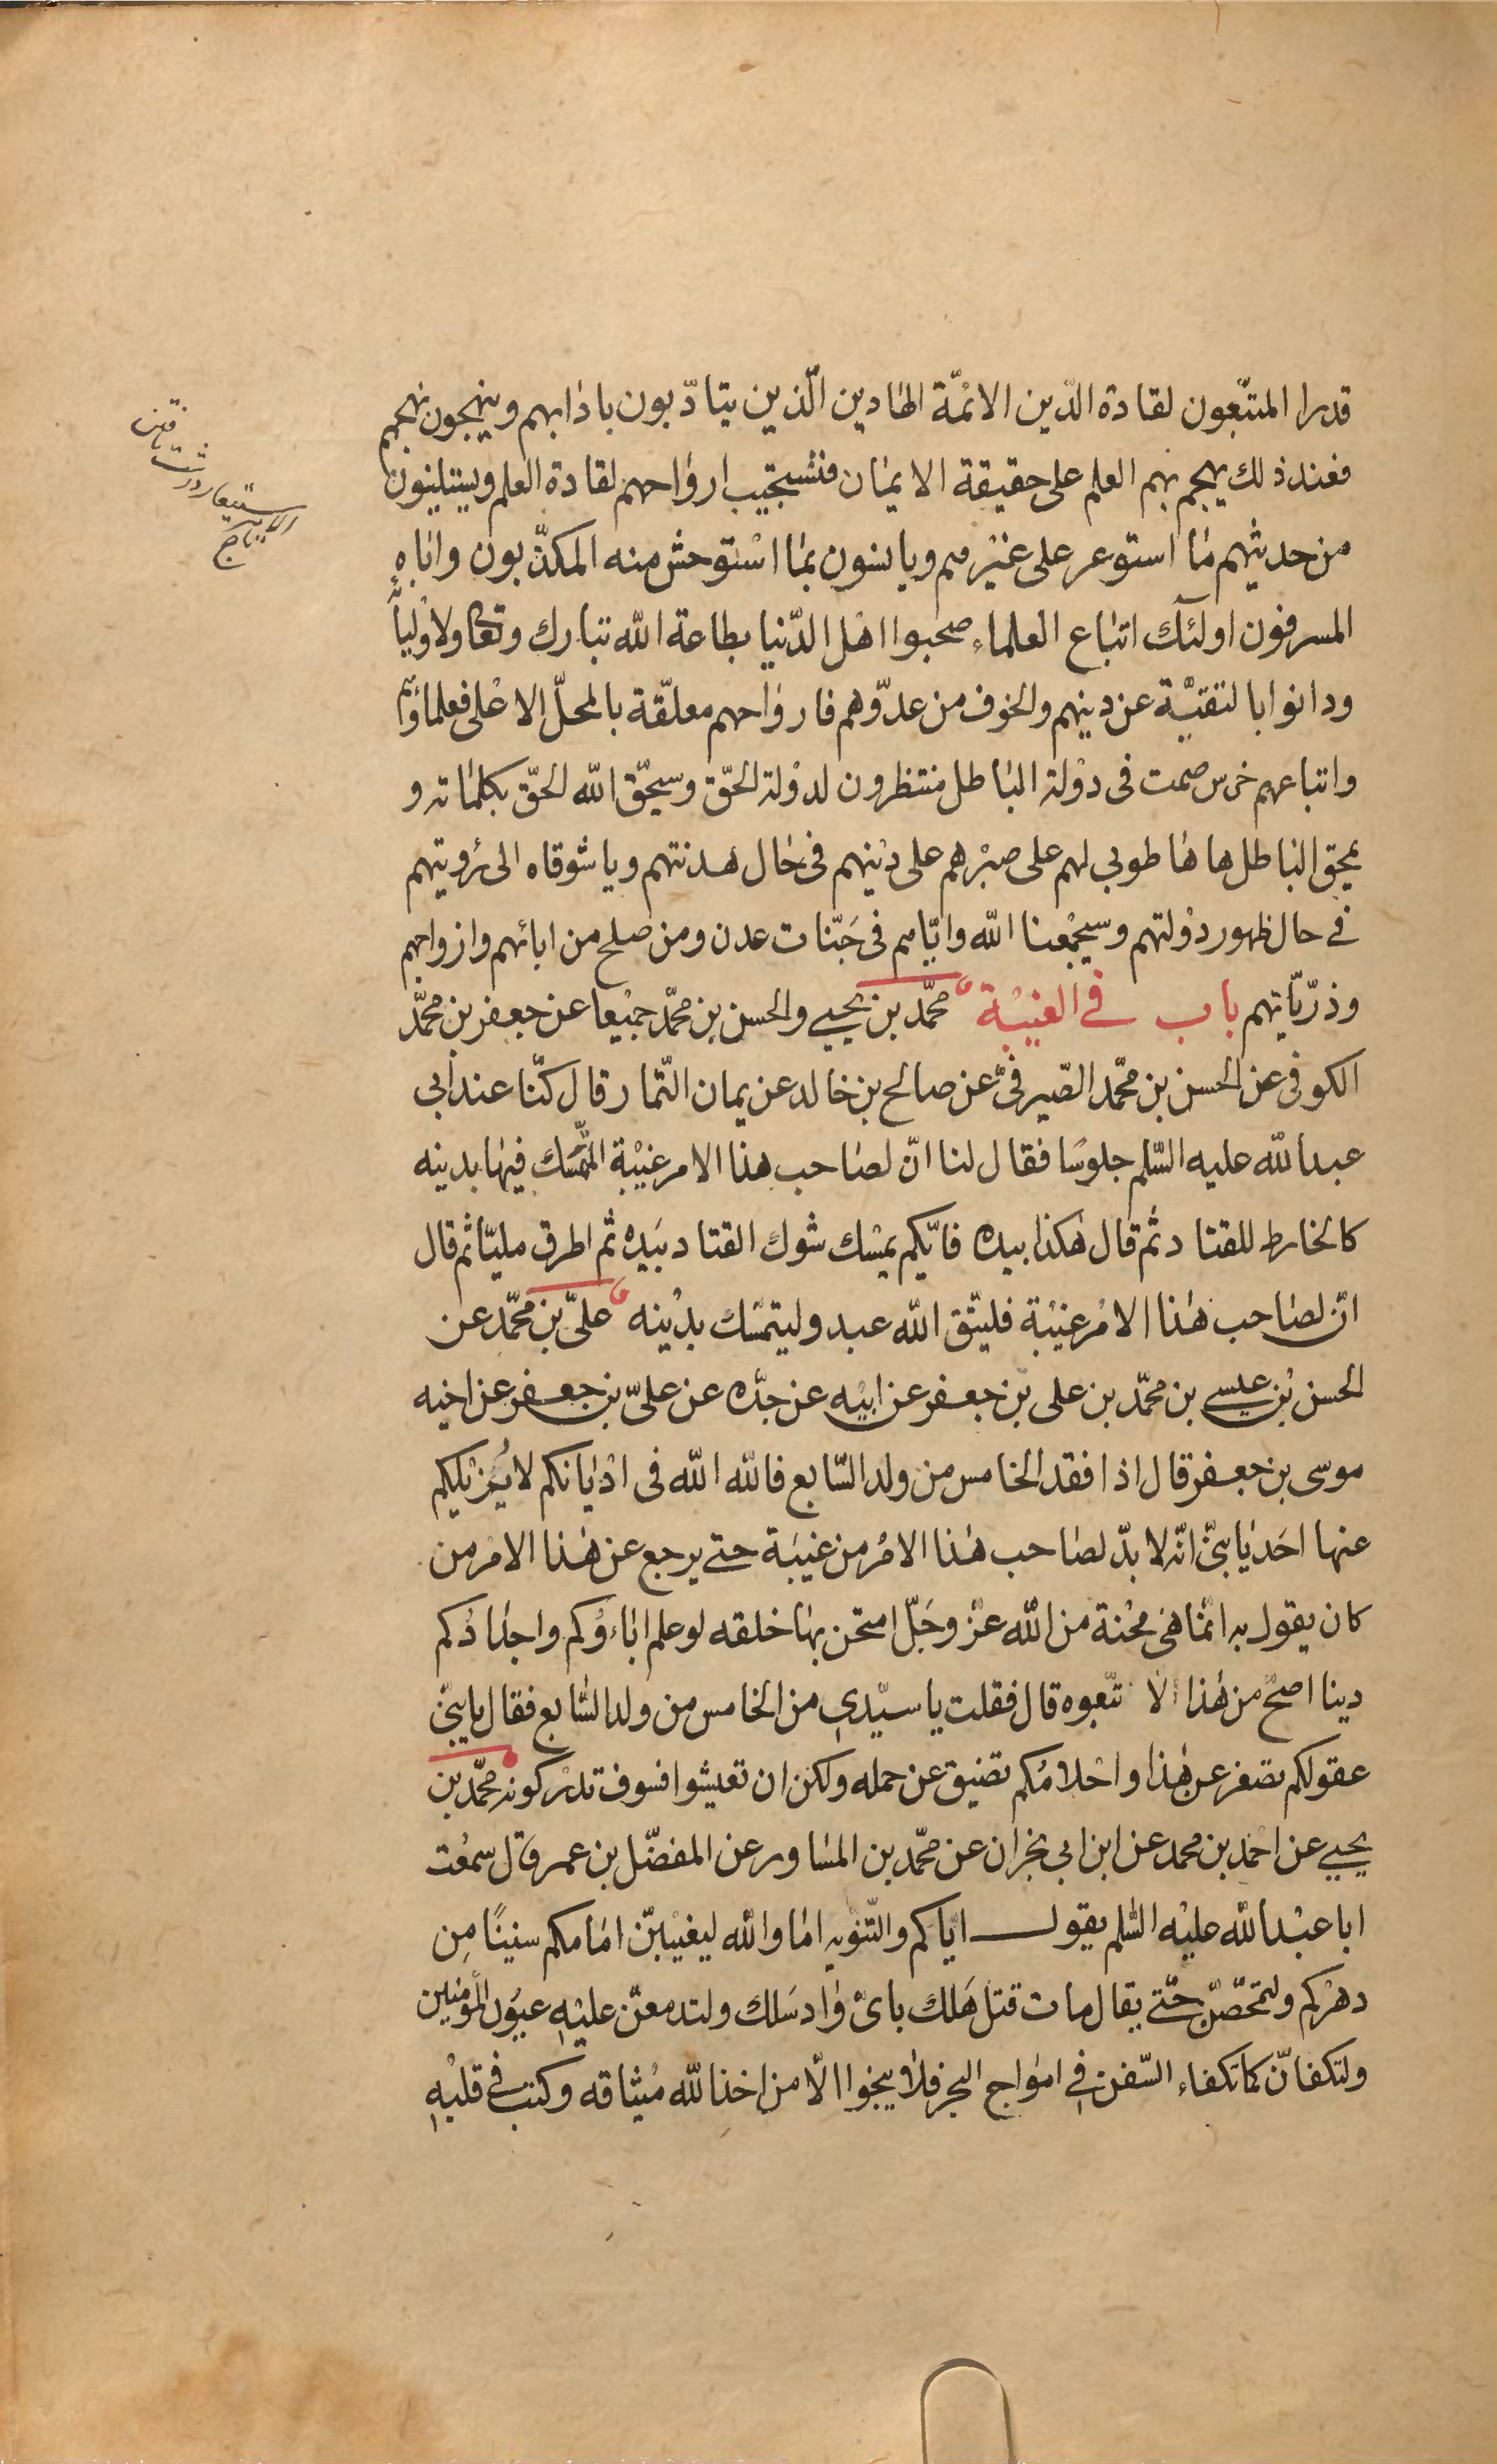 قدرا المتّبعون لقادة الدّين الائمّة الهادين الّذين يتادّبون باٰدابهم وينهجون نهجهم
فعند ذلك يهجم بهم العلم على حقيقة الايمان فتستجيب ارواحهم لقادة العلم ويستلينون
من حديثهم ما استوعر على غيرهم ويانسون بما استوحش منه المكذّبون واباه
المسرفون اولئك اتباع العلماء صحبوا اهل الدّنيا بطاعة الله تبارك وتعالى ولاوليائه
ودانوا بالتقيّة عن دينهم والخوف من عدوّهم فارواحهم معلّقة بالمحلّ الاعلى فعلماؤهم
واتباعهم خرس صمت فى دولة الباطل منتظرون لدولة الحقّ وسيحقّ الله الحقّ بكلماته و
يمحق الباطل ها ها طوبى لهم على صبرهم على دينهم فى حال هدنتهم وياشوقاه الى رؤيتهم
فى حال ظهور دولتهم وسيجمعنا الله واياهم فى جَنّات عدن ومن صلح من ابائهم وازواجهم
وذرّياتهم باب فى الغيبة محمّد بن يحيى والحسن بن محمّد جميعا عن جعفر بن محمّد
الكوفى عن الحسن بن محمّد الصّيرفىّ عن صالح بن خالد عن يمان التّمار قال كنّا عند ابى
عبدالله عليه السّلم جلوسًا فقال لنا انّ لصاحب هذا الامر غيبة المتمسّك فيها بدينه
كالخارط للقتاد ثم قال هكذا بيده فايّكم يمسك شوك القتاد بيَده ثم اطرق مليّا ثم قال
انّ لصاحب هذا الامر غيبة فليتّق الله عبد وليتمسّك بدينه علىّ بن محمّد عن
الحسن بن عيسى بن محمّد بن على بن جعفر عن ابيه عن جدّه عن علىّ بن جعفر عن اخيه
موسى بن جعفر قال اذا فقد الخامس من ولد السّابع فالله الله فى اديانكم لا يُزيلكم
عنها احَد يا بنىّ انّه لا بدّ لصاحب هذا الامر من غيبَة حتى يرجع عن هذا الامر من
كان يقول به انّما هى محنة من الله عزّ وجَلّ امتحن بها خلقه لو علم اباءؤكم واجدادكم
دينا اصحّ من هذا لا تّبعوه قال فقلت يا سيّدى من الخامس من ولد السّابع فقال يا بنىّ
عقولكم تصغر عن هذا واحلامكم تضيق عن حمله ولكن ان تعيشوا فسوف تدركونه محمّد بن
يحيى عن احمد بن محمد عن ابن ابى نجران عن محمّد بن المساور عن المفضّل بن عمر قال سمعت
اباعبدالله عليه السّلم يقول ايّاكم والتّنويه اما والله ليغيبنّ امامكم سنينًا مِن
دهركم ولتمحّصنّ حتّى يقال مات قتل هَلك باىّ واد سَلك ولتدمعنّ عليه عيون المؤمنين
ولتكفانّ كما تكفاء السّفن فى امواج البحر فلا ينجوا الّا من اخذ الله ميثاقه وكتب فى قلبه